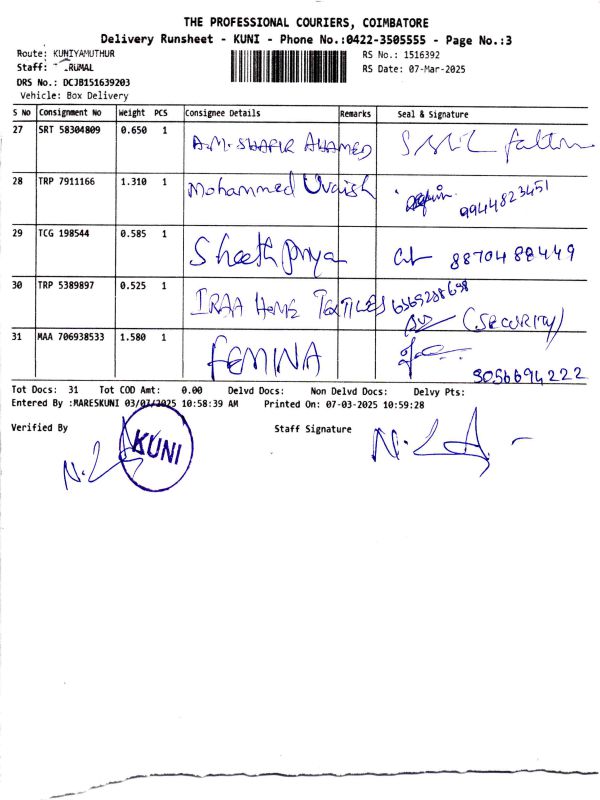 THE PROFESSIONAL COURIERS, COIMBATORE
Delivery Runsheet - KUNI - Phone No.:0422-3505555 - Page No.:3
Route: KUNIYAMUTHUR RS No.: 1516392
Staff: RUMAL RS Date: 07-Mar-2025
DRS No.: DCJB151639203
Vehicle: Box Delivery
S No Consignment No Weight PCS Consignee Details Remarks Seal & Signature
27 SRT 58304809 0.650 1 A.M. SHAFIR AHAMED
28 TRP 7911166 1.310 1 Mohammed Uvaish 9944823451
29 TCG 198544 0.585 1 Sheeth priya 8870488449
30 TRP 5389897 0.525 1 IRAA HOME TEXTILES
(SECURITY)
31 MAA 706938533 1.580 1 FEMINA
9056694222
Tot Docs: 31 Tot COD Amt: 0.00 Delvd Docs: Non Delvd Docs: Delvy Pts:
Entered By :MARESKUNI 03/07/2025 10:58:39 AM Printed On: 07-03-2025 10:59:28
Verified By Staff Signature
KUNI